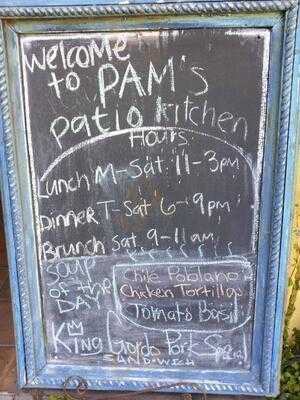 Welcome
to PAM's
patio kitchen
Hours
Lunch M-Sat 11-3pm
Dinner T-Sat 6-9pm
Brunch Sat 9-11am
Soup
of the
DAY
Chile Poblano
Chicken Tortilla
Tomato Basil
King Gordo Pork Special
SANDWICH